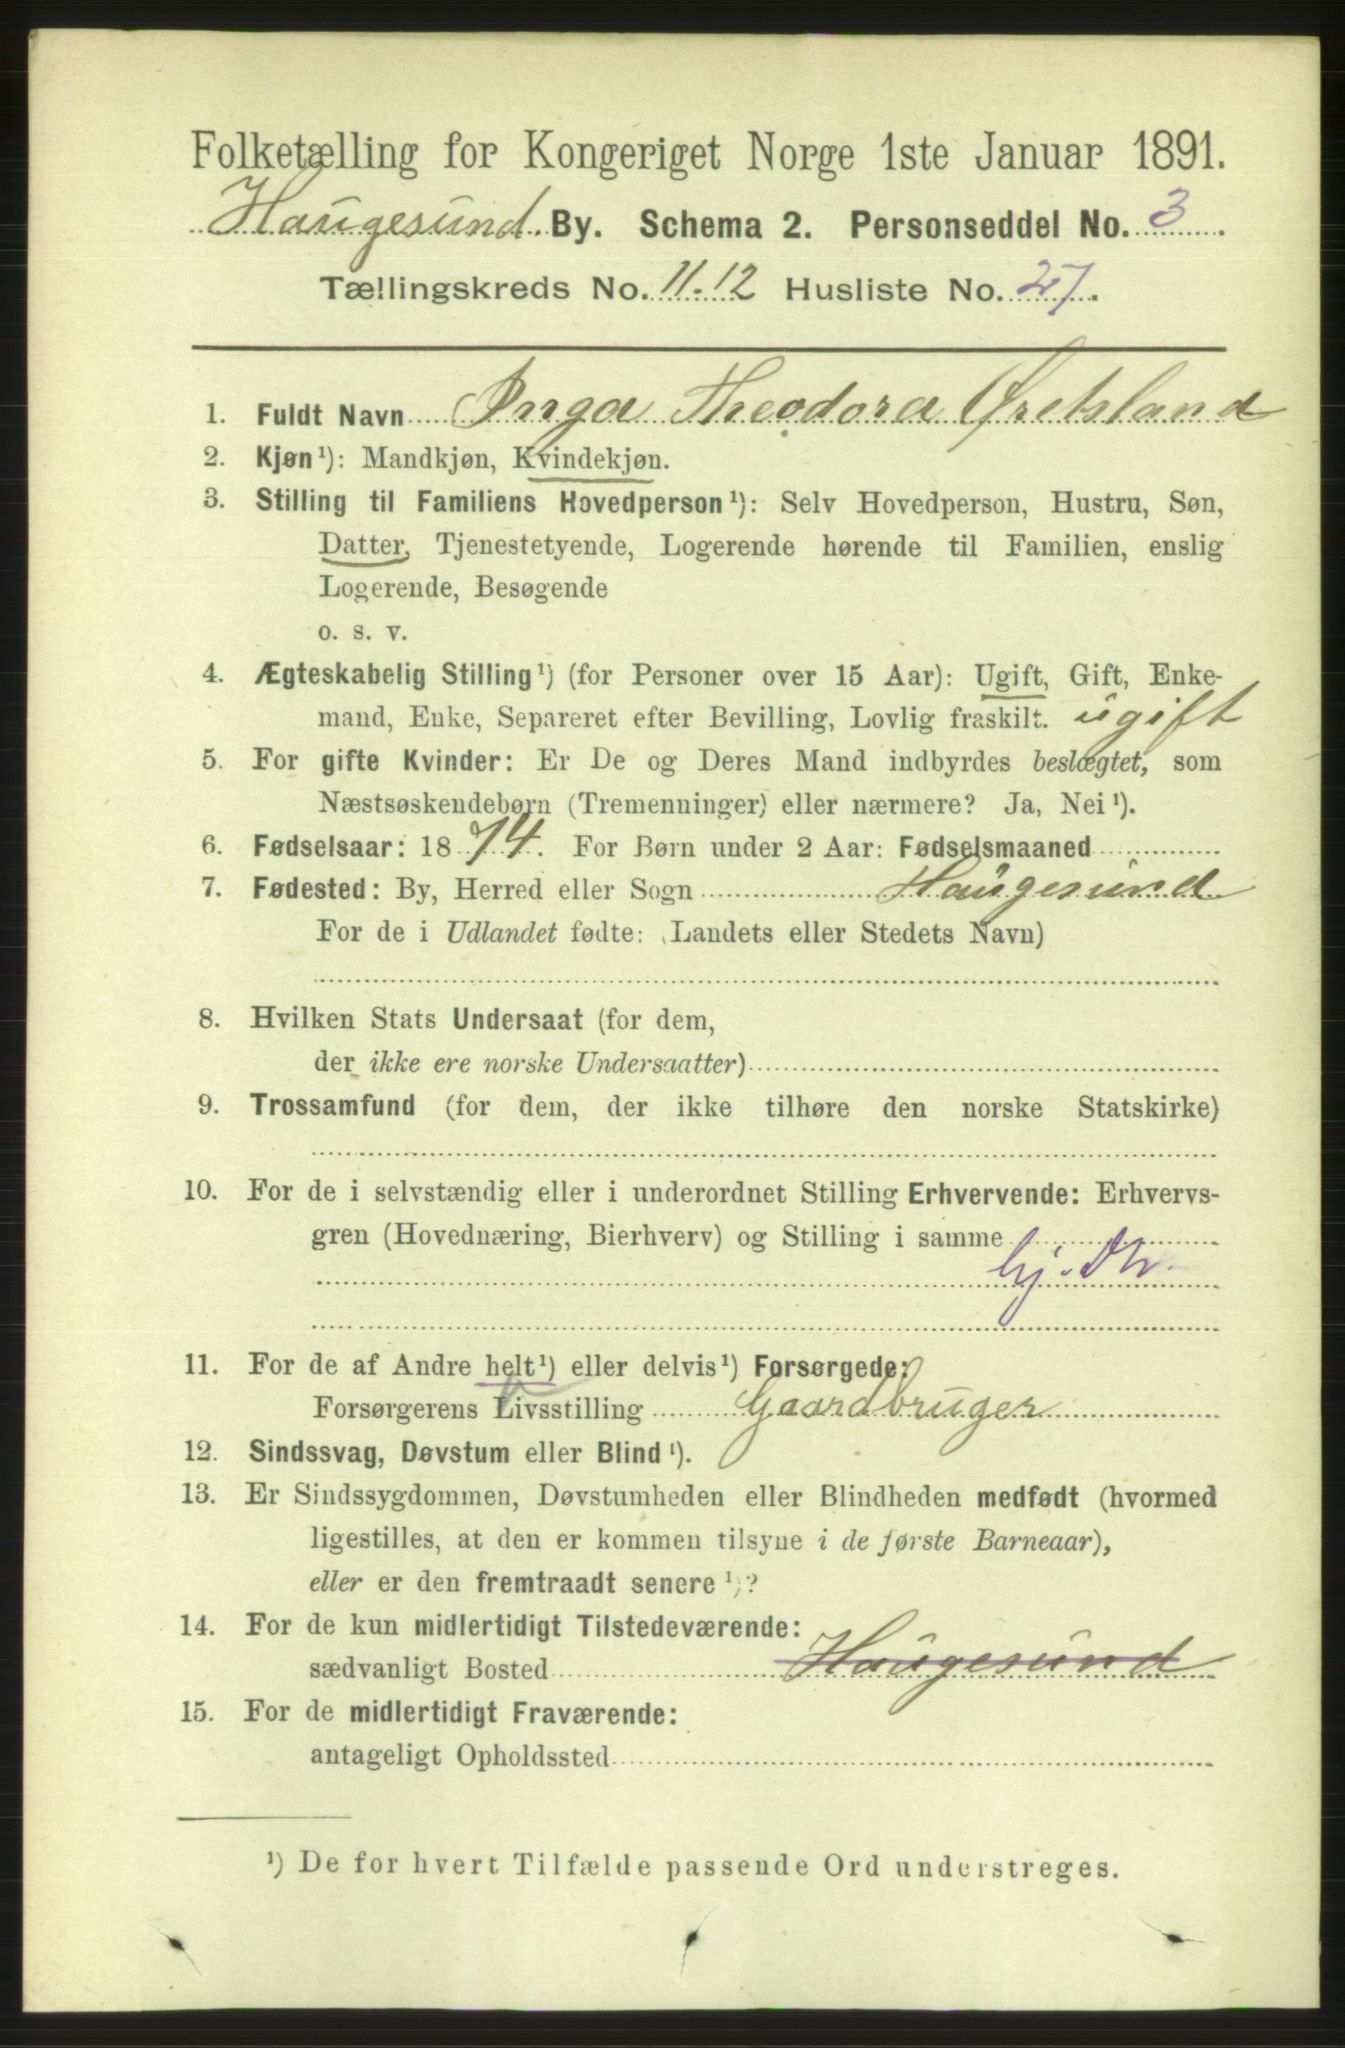 Folketælling for Kongeriget Norge 1ste Januar 1891.
Haugesund By. Schema 2. Personseddel No. 3
Tællingskreds No. 11-12 Husliste No. 27.
1. Fuldt Navn Inga Theodora Øretsland
2. Kjøn¹): Mandkjøn, Kvindekjøn.
3. Stilling til Familiens Hovedperson¹): Selv Hovedperson, Hustru, Søn,
Datter, Tjenestetyende, Logerende hørende til Familien, enslig
Logerende, Besøgende
o. s. v.
4. Ægteskabelig Stilling¹) (for Personer over 15 Aar): Ugift, Gift, Enke-
mand, Enke, Separeret efter Bevilling, Lovlig fraskilt. ugift
5. For gifte Kvinder: Er De og Deres Mand indbyrdes beslægtet, som
Næstsøskendebørn (Tremenninger) eller nærmere? Ja, Nei¹).
6. Fødselsaar: 1874. For Børn under 2 Aar: Fødselsmaaned
7. Fødested: By, Herred eller Sogn Haugesund
For de i Udlandet fødte: (Landets eller Stedets Navn)
8. Hvilken Stats Undersaat (for dem,
der ikke ere norske Undersaatter)
9. Trossamfund (for dem, der ikke tilhøre den norske Statskirke)
10. For de i selvstændig eller i underordnet Stilling Erhvervende: Erhvervs-
gren (Hovednæring, Bierhverv) og Stilling i samme
hj.
11. For de af Andre helt¹) eller delvis¹) Forsørgede:
Forsørgerens Livsstilling Gaardbruger
12. Sindssvag, Døvstum eller Blind¹).
13. Er Sindssygdommen, Døvstumheden eller Blindheden medfødt (hvormed
ligestilles, at den er kommen tilsyne i de første Barneaar),
eller er den fremtraadt senere¹)?
14. For de kun midlertidigt Tilstedeværende:
sædvanligt Bosted Haugesund
15. For de midlertidigt Fraværende:
antageligt Opholdssted
¹) De for hvert Tilfælde passende Ord understreges.